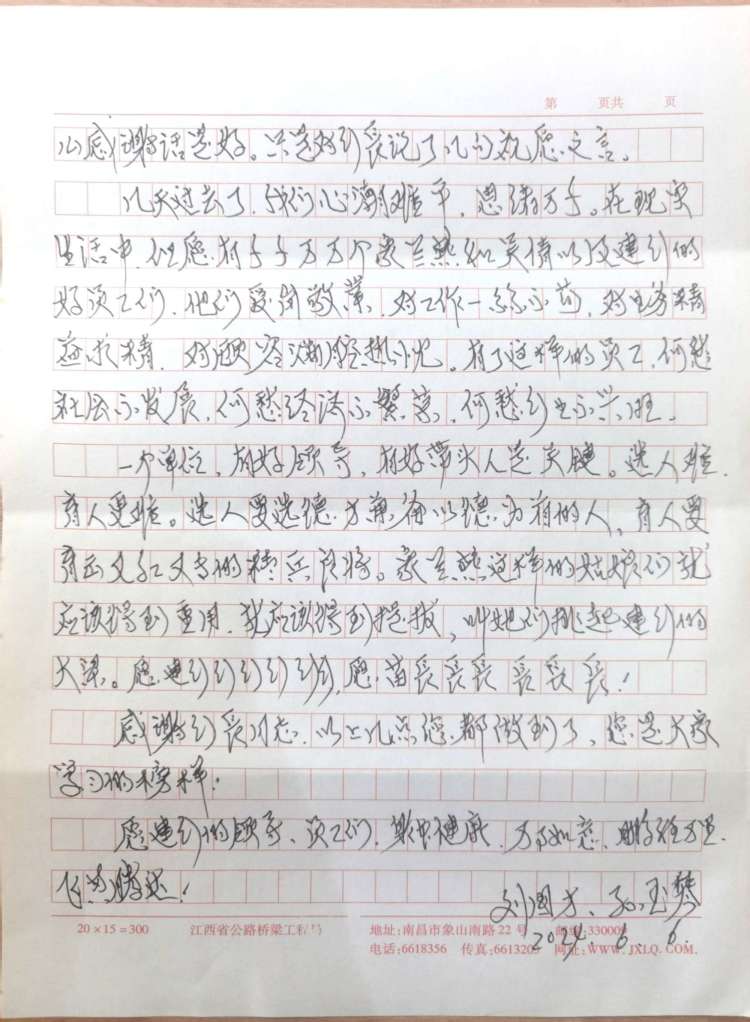 第 页共 页
心感谢话是好。只是好行长说了几句祝愿之言。
几天过去了，我们心潮难平，思绪万千。在现实
生活中，但愿有千千万万个袁兰熱和吴倩以及建行的
好员工们，他们爱岗敬业，对工作一丝不苟，对业务精
益求精，对顾客满腔热忱。有了这样的员工，何愁
社会不发展，何愁经济不繁荣，何愁行业不兴旺。
一个单位，有好领导，有好带头人是关键。选人难，
育人更难。选人要选德才兼备以德为首的人，育人要
育出又红又专的精兵良将。袁兰熱这样的姑娘们就
应该得到重用，就应该得到提拔，叫她们挑起建行的
大梁。愿建行行行行行行，愿苗长长长长长长！
感谢行长同志，以上几点您都做到了，您是大家
学习的榜样！
愿建行的领导、员工们，身体健康，万事如意，鹏程万里，
飞黄腾达！
刘国才、孙玉琴
2024.6.6.
20×15=300 江西省公路桥梁工程局 地址:南昌市象山南路22号 邮编:330009
电话:6618356 传真:661320 网址:WWW.JXLQ.COM.